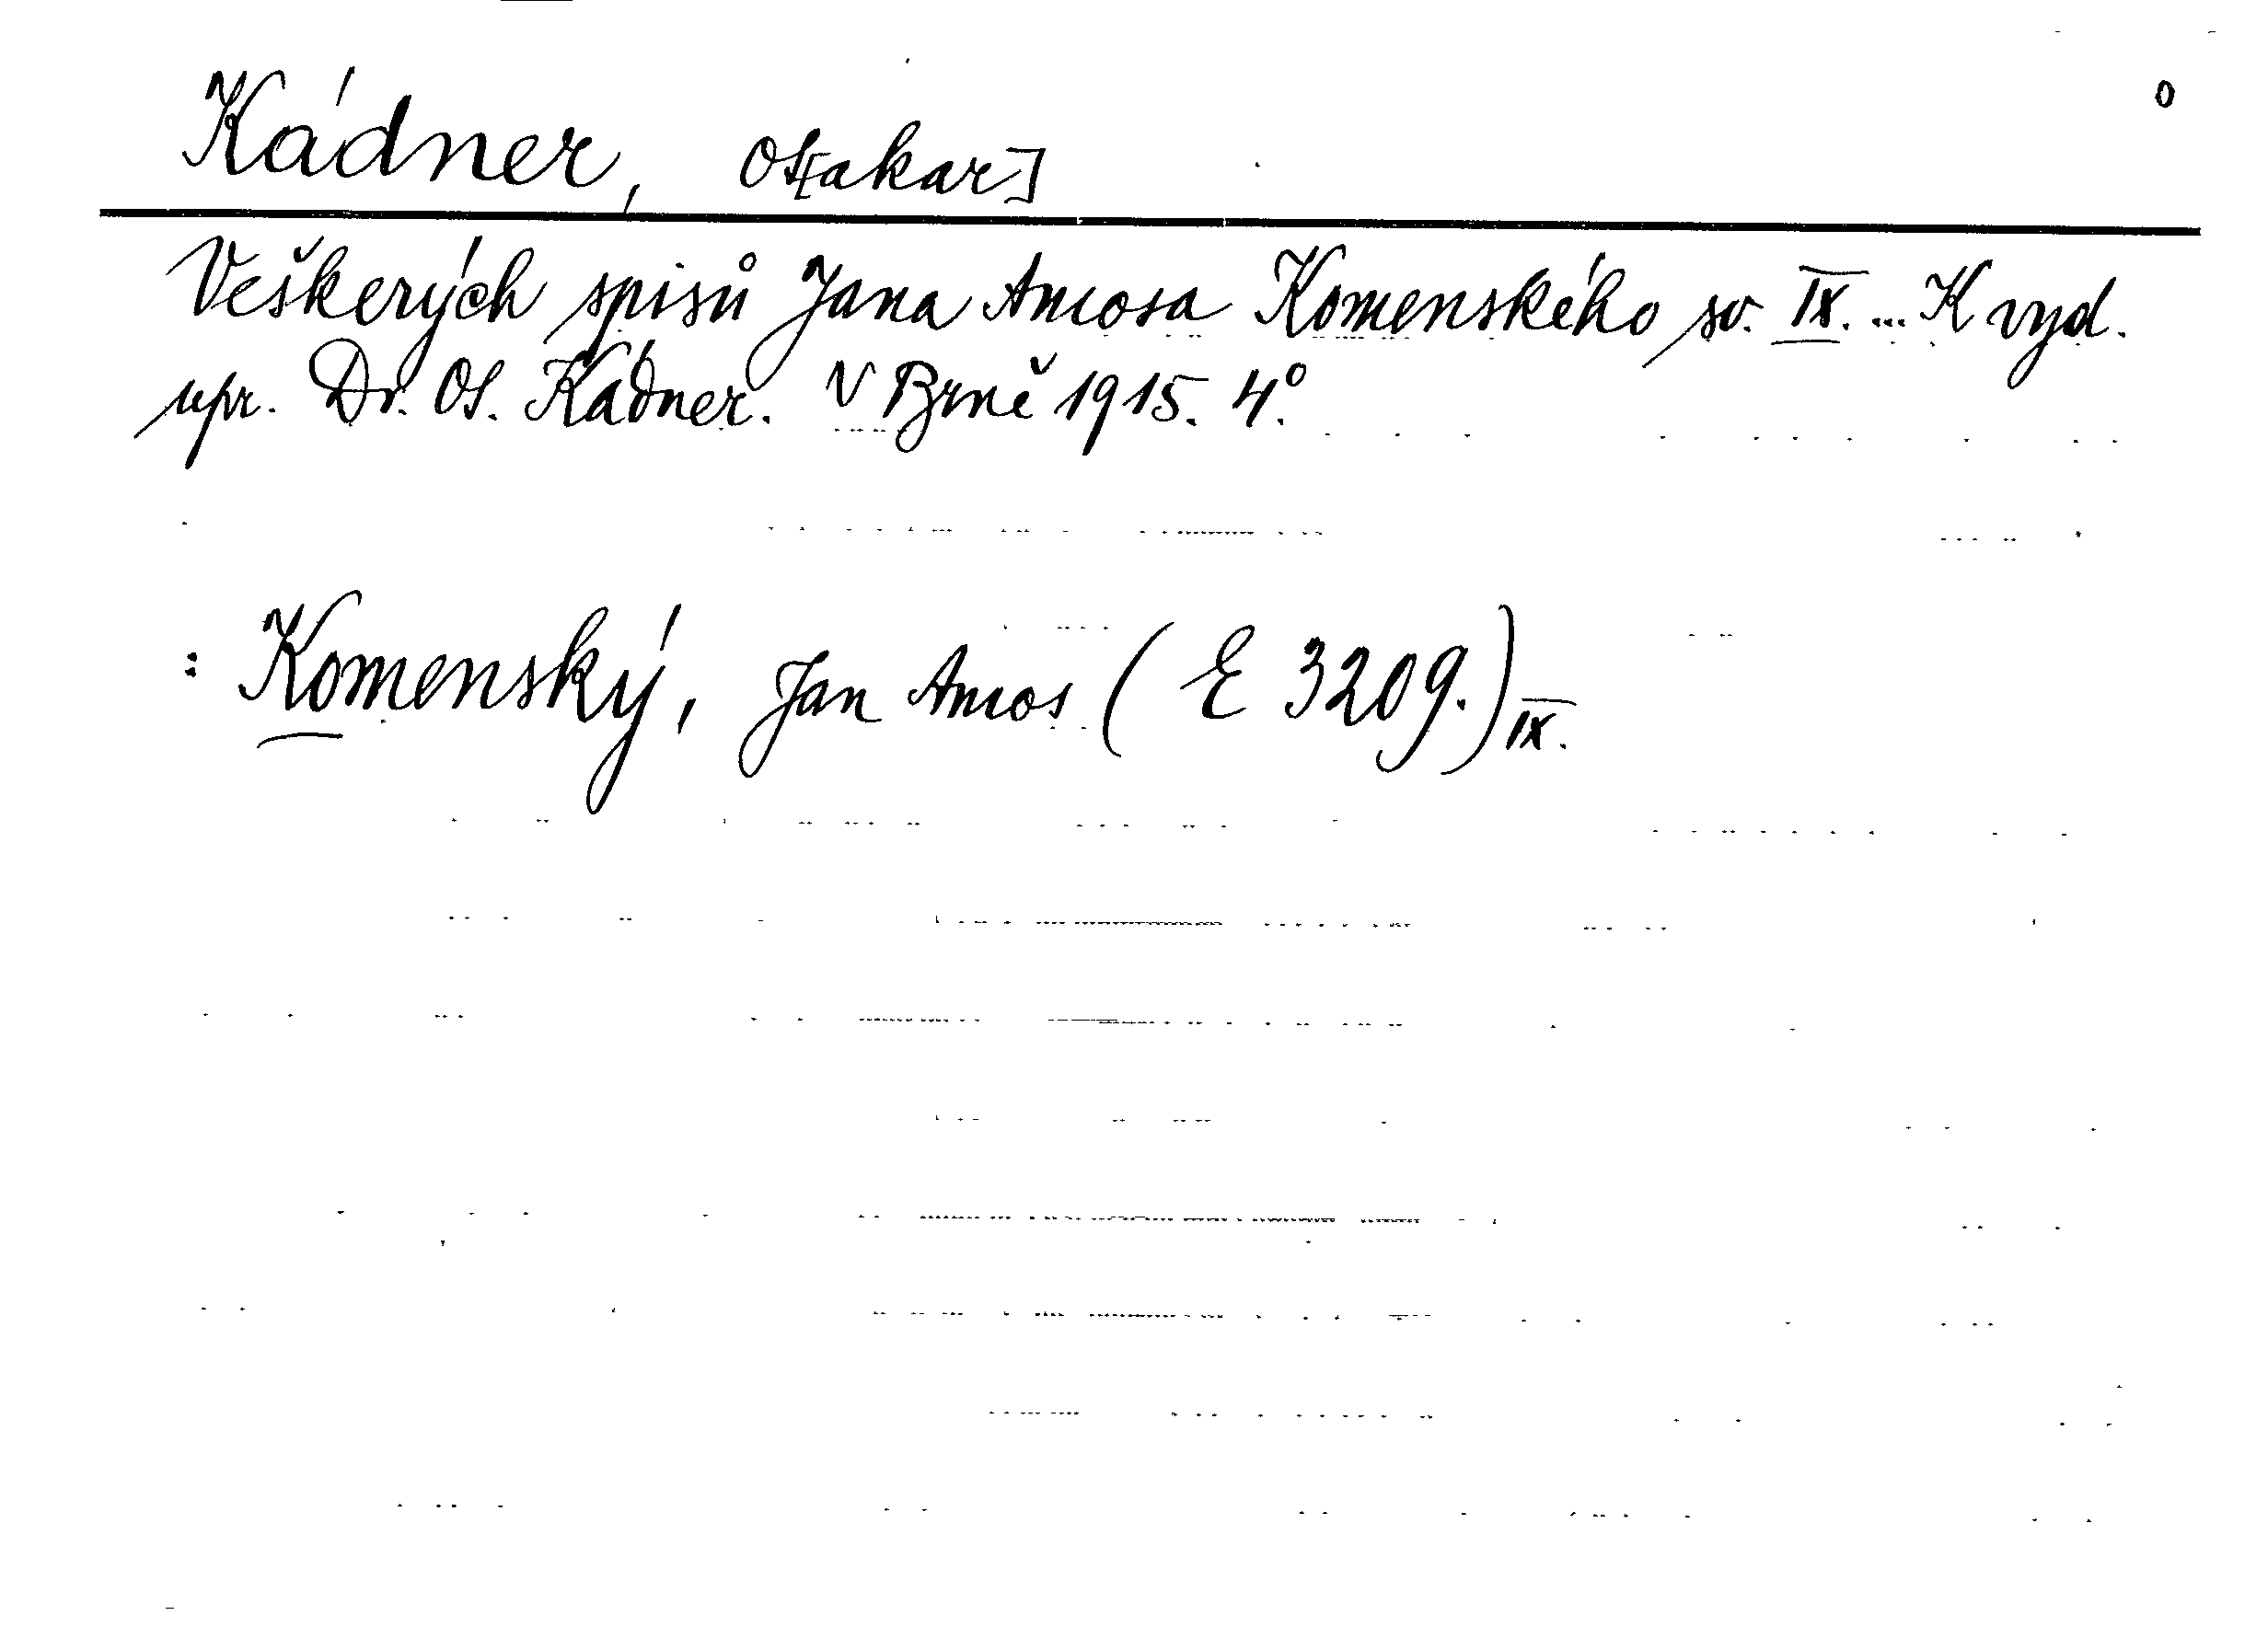 Kádner, Ot[akar] o
Veškerých spisů Jana Amosa Komenského sv. IX. ... K vyd.
upr. Dr. Ot. Kádner. V Brně 1915. 4°.
: Komenský, Jan Amos (E 3209.) IX.